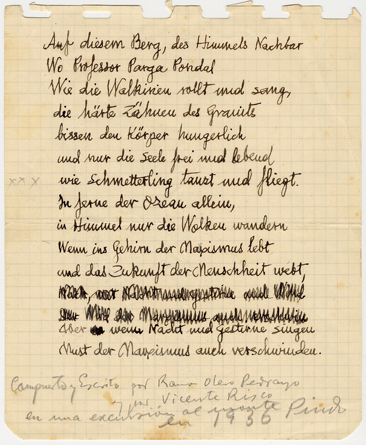 Auf diesem Berg, des Himmels Nachbar
Wo Professor Parga Pondal
Wie die Walkirien rollt und sang,
die härte Zähnen des Granits
bissen den Körper hungerlich
und nur die Seele frei und lebend
xxx wie Schmetterling tanzt und fliegt.
In ferne der Ozean allein,
in Himmel nur die Wolken wandern
Wenn ins Gehirn der Marxismus lebt
und das Zukunft der Menschheit webt,
Aber wenn Nacht und Gestirne singen
Must der Marxismus auch verschwinden.
Compuesto y Escrito por Ramon Otero Pedrayo
y por Vicente Risco
en una excursión al monte Pindo
en 1936